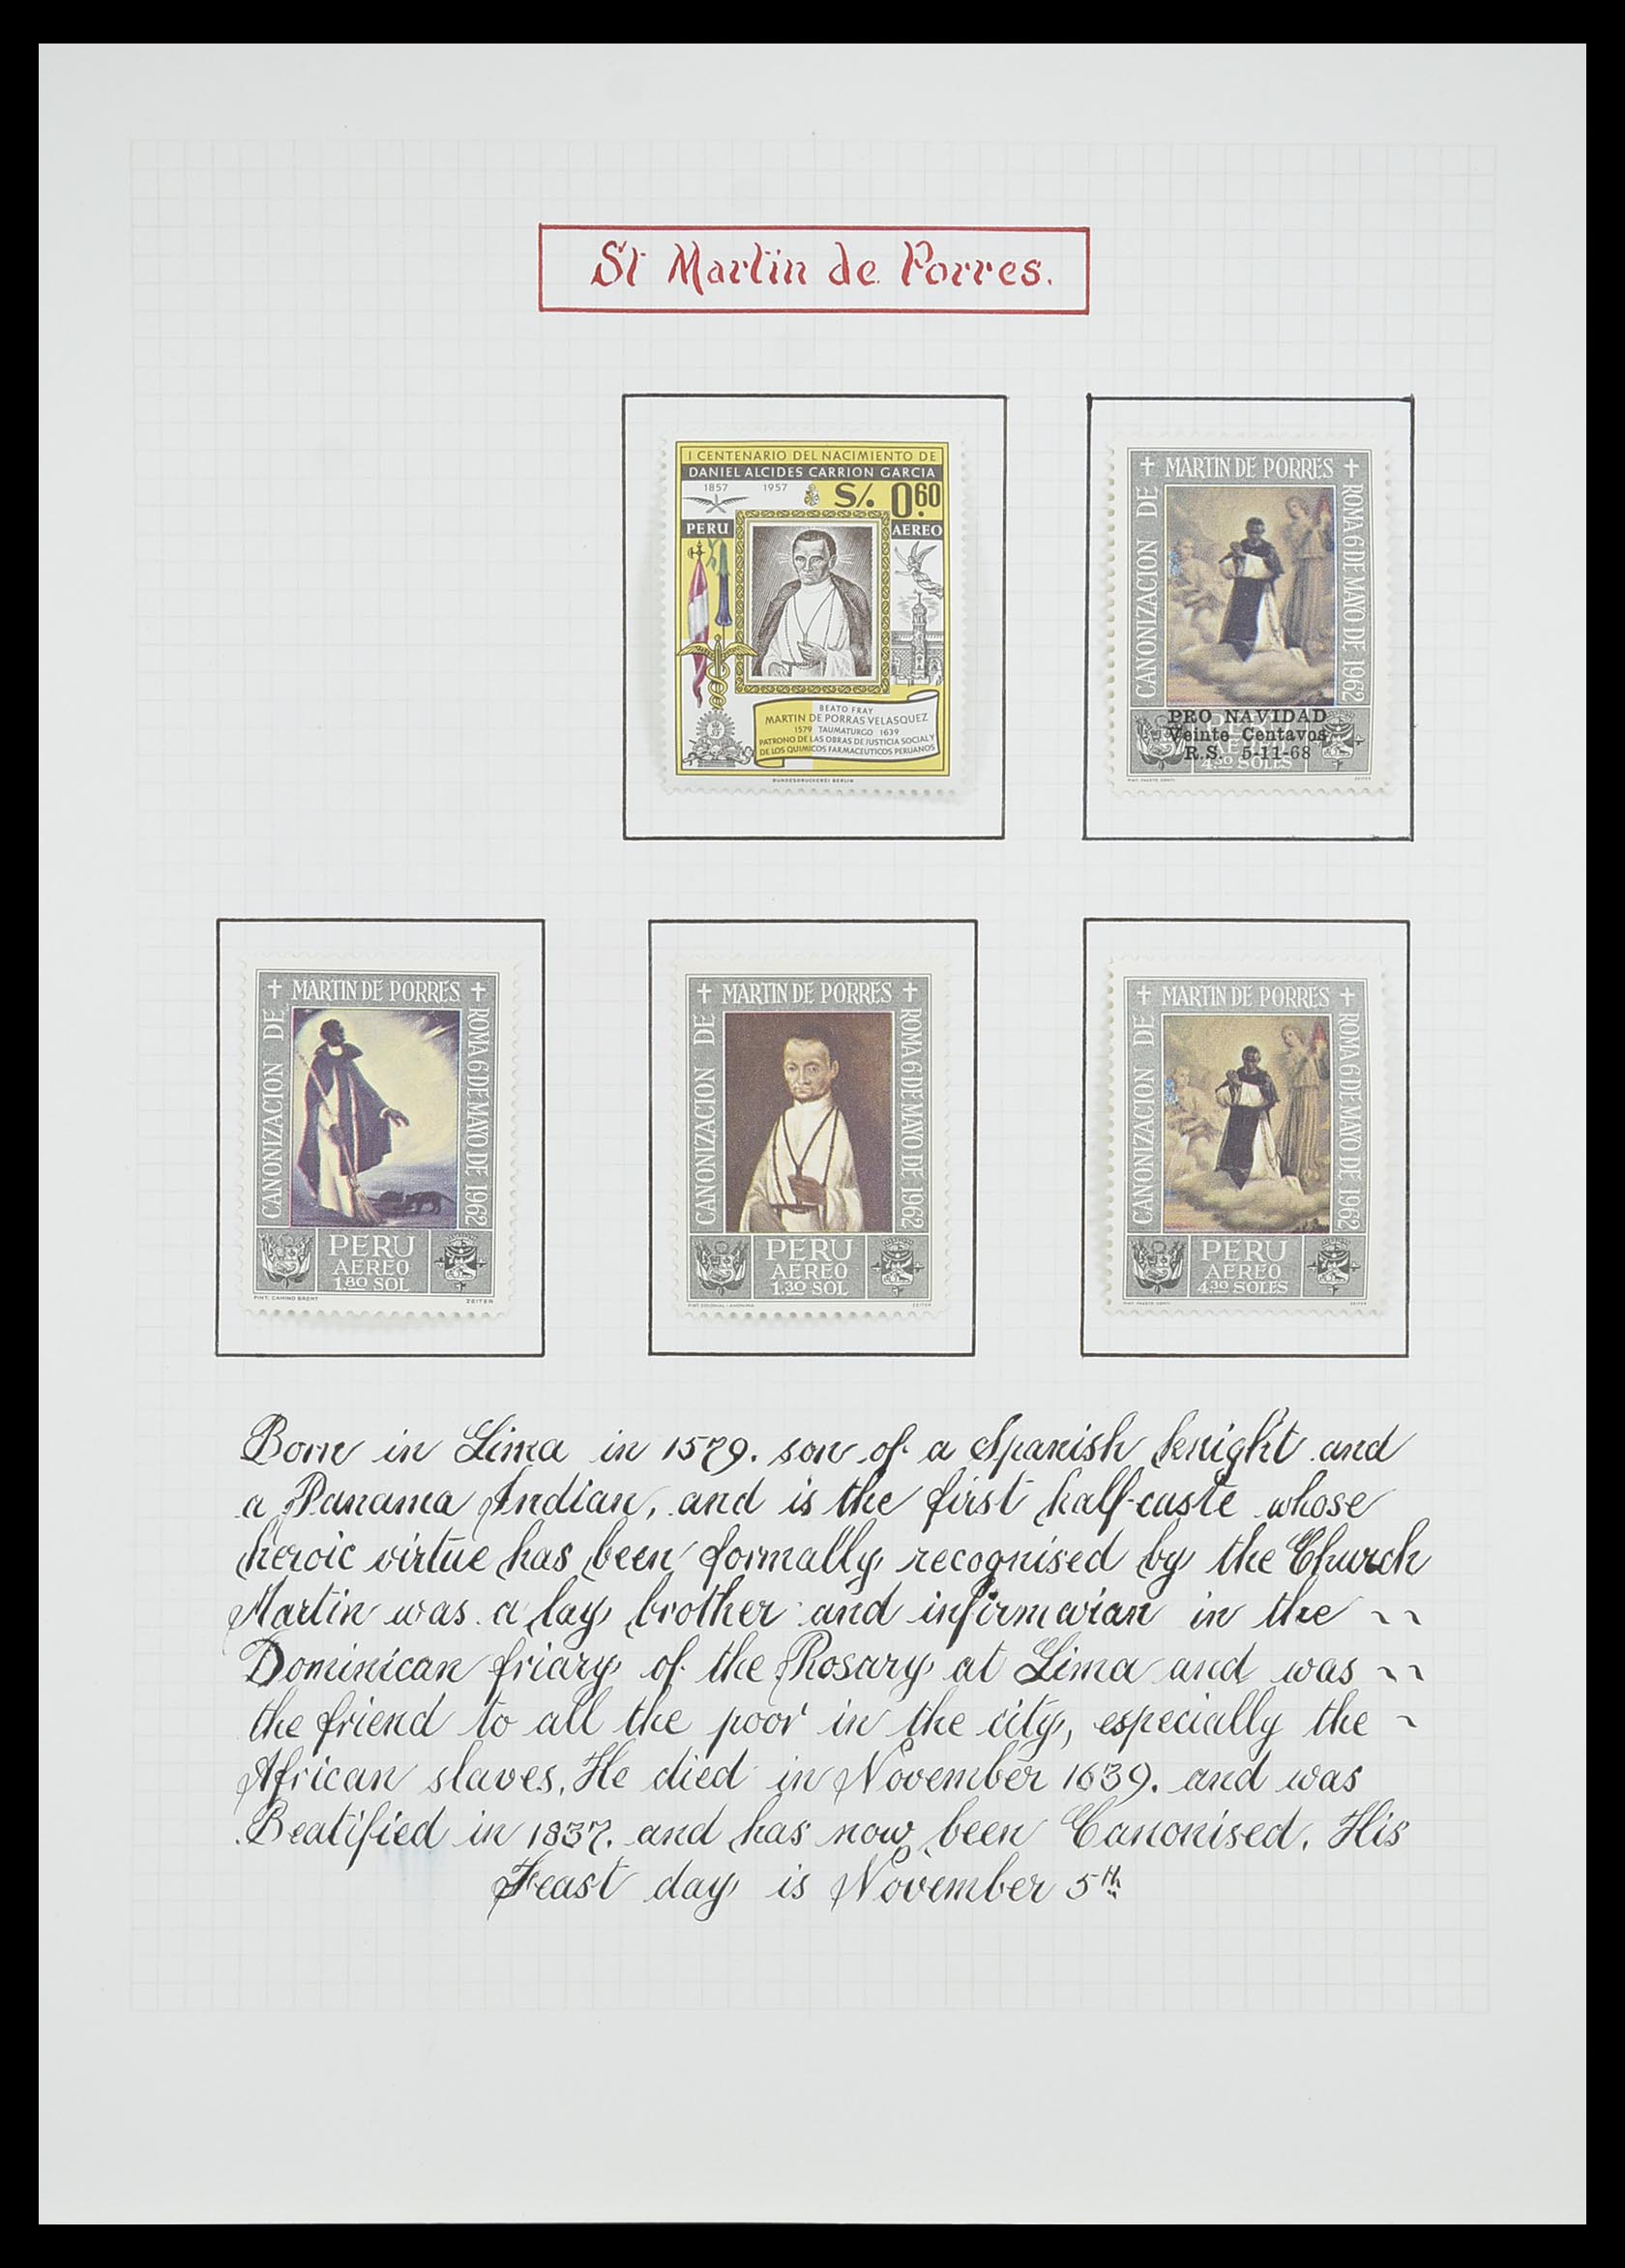 St Martin de Porres.
I CENTENARIO DEL NACIMIENTO DE
DANIEL ALCIDES CARRION GARCIA
1857 1957
S/. 0.60
PERU
AEREO
BEATO FRAY
MARTIN DE PORRAS VELASQUEZ
1579 TAUMATURGO 1639
PATRONO DE LAS OBRAS DE JUSTICIA SOCIAL Y
DE LOS QUIMICOS FARMACEUTICOS PERUANOS
BUNDESDRUCKEREI BERLIN
CANONIZACION DE
MARTIN DE PORRES
ROMA 6 DE MAYO DE 1962
PRO NAVIDAD
Veinte Centavos
R.S. 5-11-68
4.30 SOLES
PINT. FAUSTO CONTI
ZEITEN
CANONIZACION DE
MARTIN DE PORRES
ROMA 6 DE MAYO DE 1962
PERU
AEREO
1.80 SOL
PINT. CAMINO BRENT
ZEITEN
CANONIZACION DE
MARTIN DE PORRES
ROMA 6 DE MAYO DE 1962
PERU
AEREO
1.30 SOL
PINT. COLONIAL ANONIMA
ZEITEN
CANONIZACION DE
MARTIN DE PORRES
ROMA 6 DE MAYO DE 1962
PERU
AEREO
4.30 SOLES
PINT. FAUSTO CONTI
ZEITEN
Born in Lima in 1579. son of a Spanish knight and
a Panama Indian, and is the first half-caste whose
heroic virtue has been formally recognised by the Church
Martin was a lay brother and infirmarian in the ~~
Dominican friary of the Rosary at Lima and was ~~
the friend to all the poor in the city, especially the ~
African slaves, He died in November 1639. and was
Beatified in 1837. and has now been Canonised. His
Feast day is November 5th